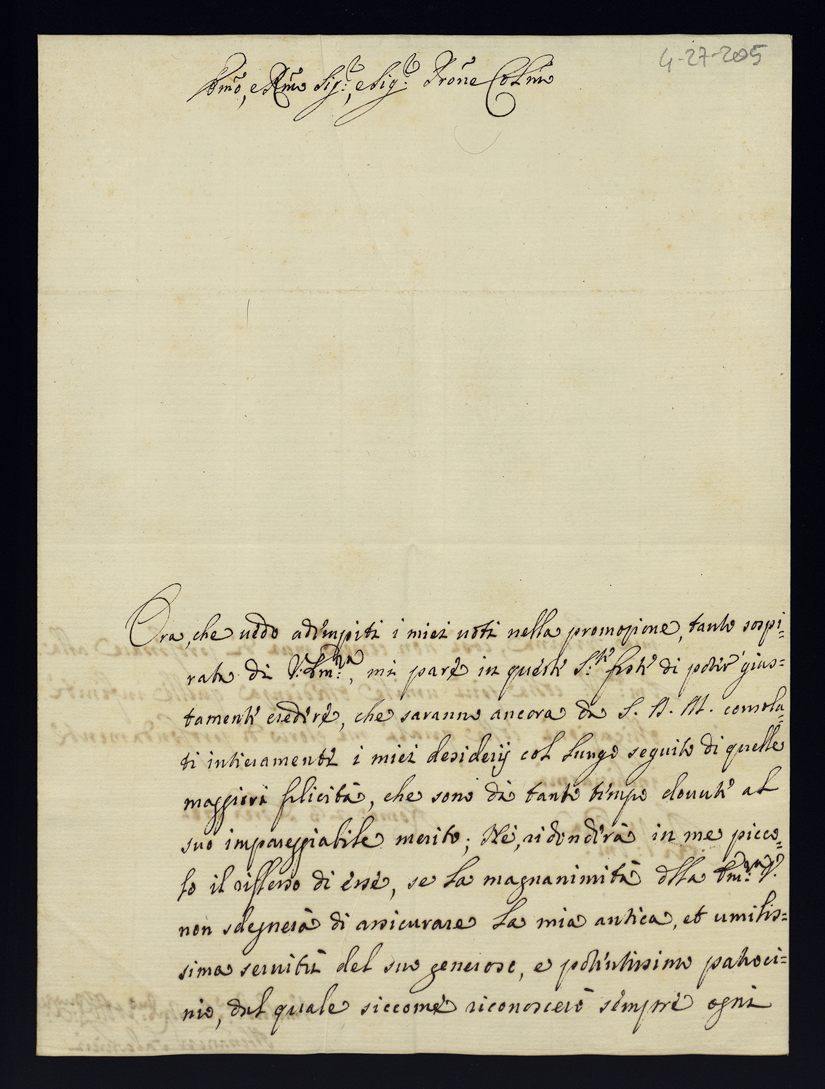 4-27-2005
Emo, e Rmo Sig:r, e Sig:r Prone Colmo
Ora, che uedo adempiti i miei uoti nella promozione, tanto sospi=
rata di V: Em:za, mi pare in queste S:te feste di poter gius=
tamente credere, che saranno ancora da S. D. M. consola=
ti intieramente i miei desiderij col lungo seguito di quelle
maggiori felicità, che sono da tanto tempo douute al
suo impareggiabile merito; Né, ridonderà in me picco=
lo il riflesso di esse, se la magnanimità della Em:za V:
non sdegnerà di assicurare la mia antica, et umilis=
sima seruitù del suo generoso, e potentissimo patroci=
nio, dal quale siccome riconoscerò sempre ogni